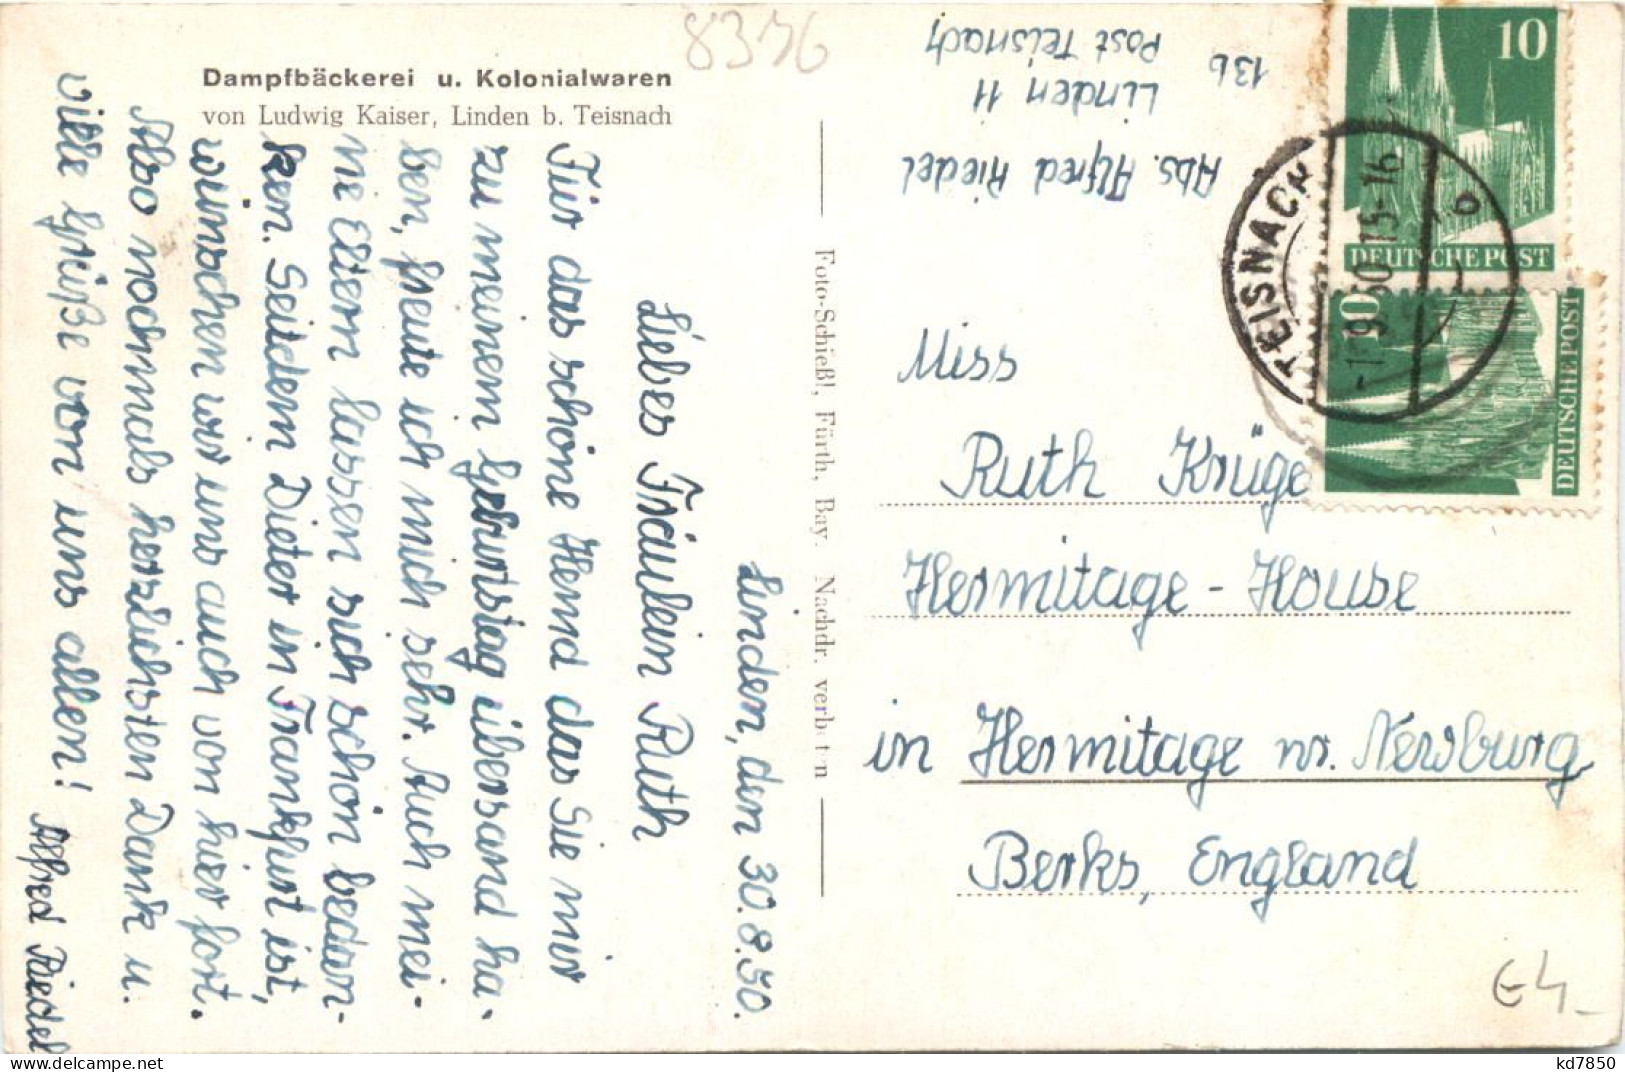 8376
Dampfbäckerei u. Kolonialwaren
von Ludwig Kaiser, Linden b. Teisnach
Linden, den 30.8.50.
Liebes Fräulein Ruth
Für das schöne Hemd das Sie mir
zu meinem Geburtstag übersand ha-
ben, freute ich mich sehr. Auch mei-
ne Eltern lassen sich schön bedan-
ken. Seitdem Dieter in Frankfurt ist,
wünschen wir uns auch von hier fort.
Also nochmals herzlichsten Dank u.
viele Grüße von uns allen!
Alfred Riedel
Foto-Schießl, Fürth, Bay. Nachdr. verboten
Abs. Alfred Riedel
13b Linden 11
Post Teisnach
10
DEUTSCHE POST
10
DEUTSCHE POST
TEISNACH
-1.9.50.15-16
Miss
Ruth Krüge
Hermitage-House
in Hermitage nr. Newburg
Berks, England
€4-
kd7850